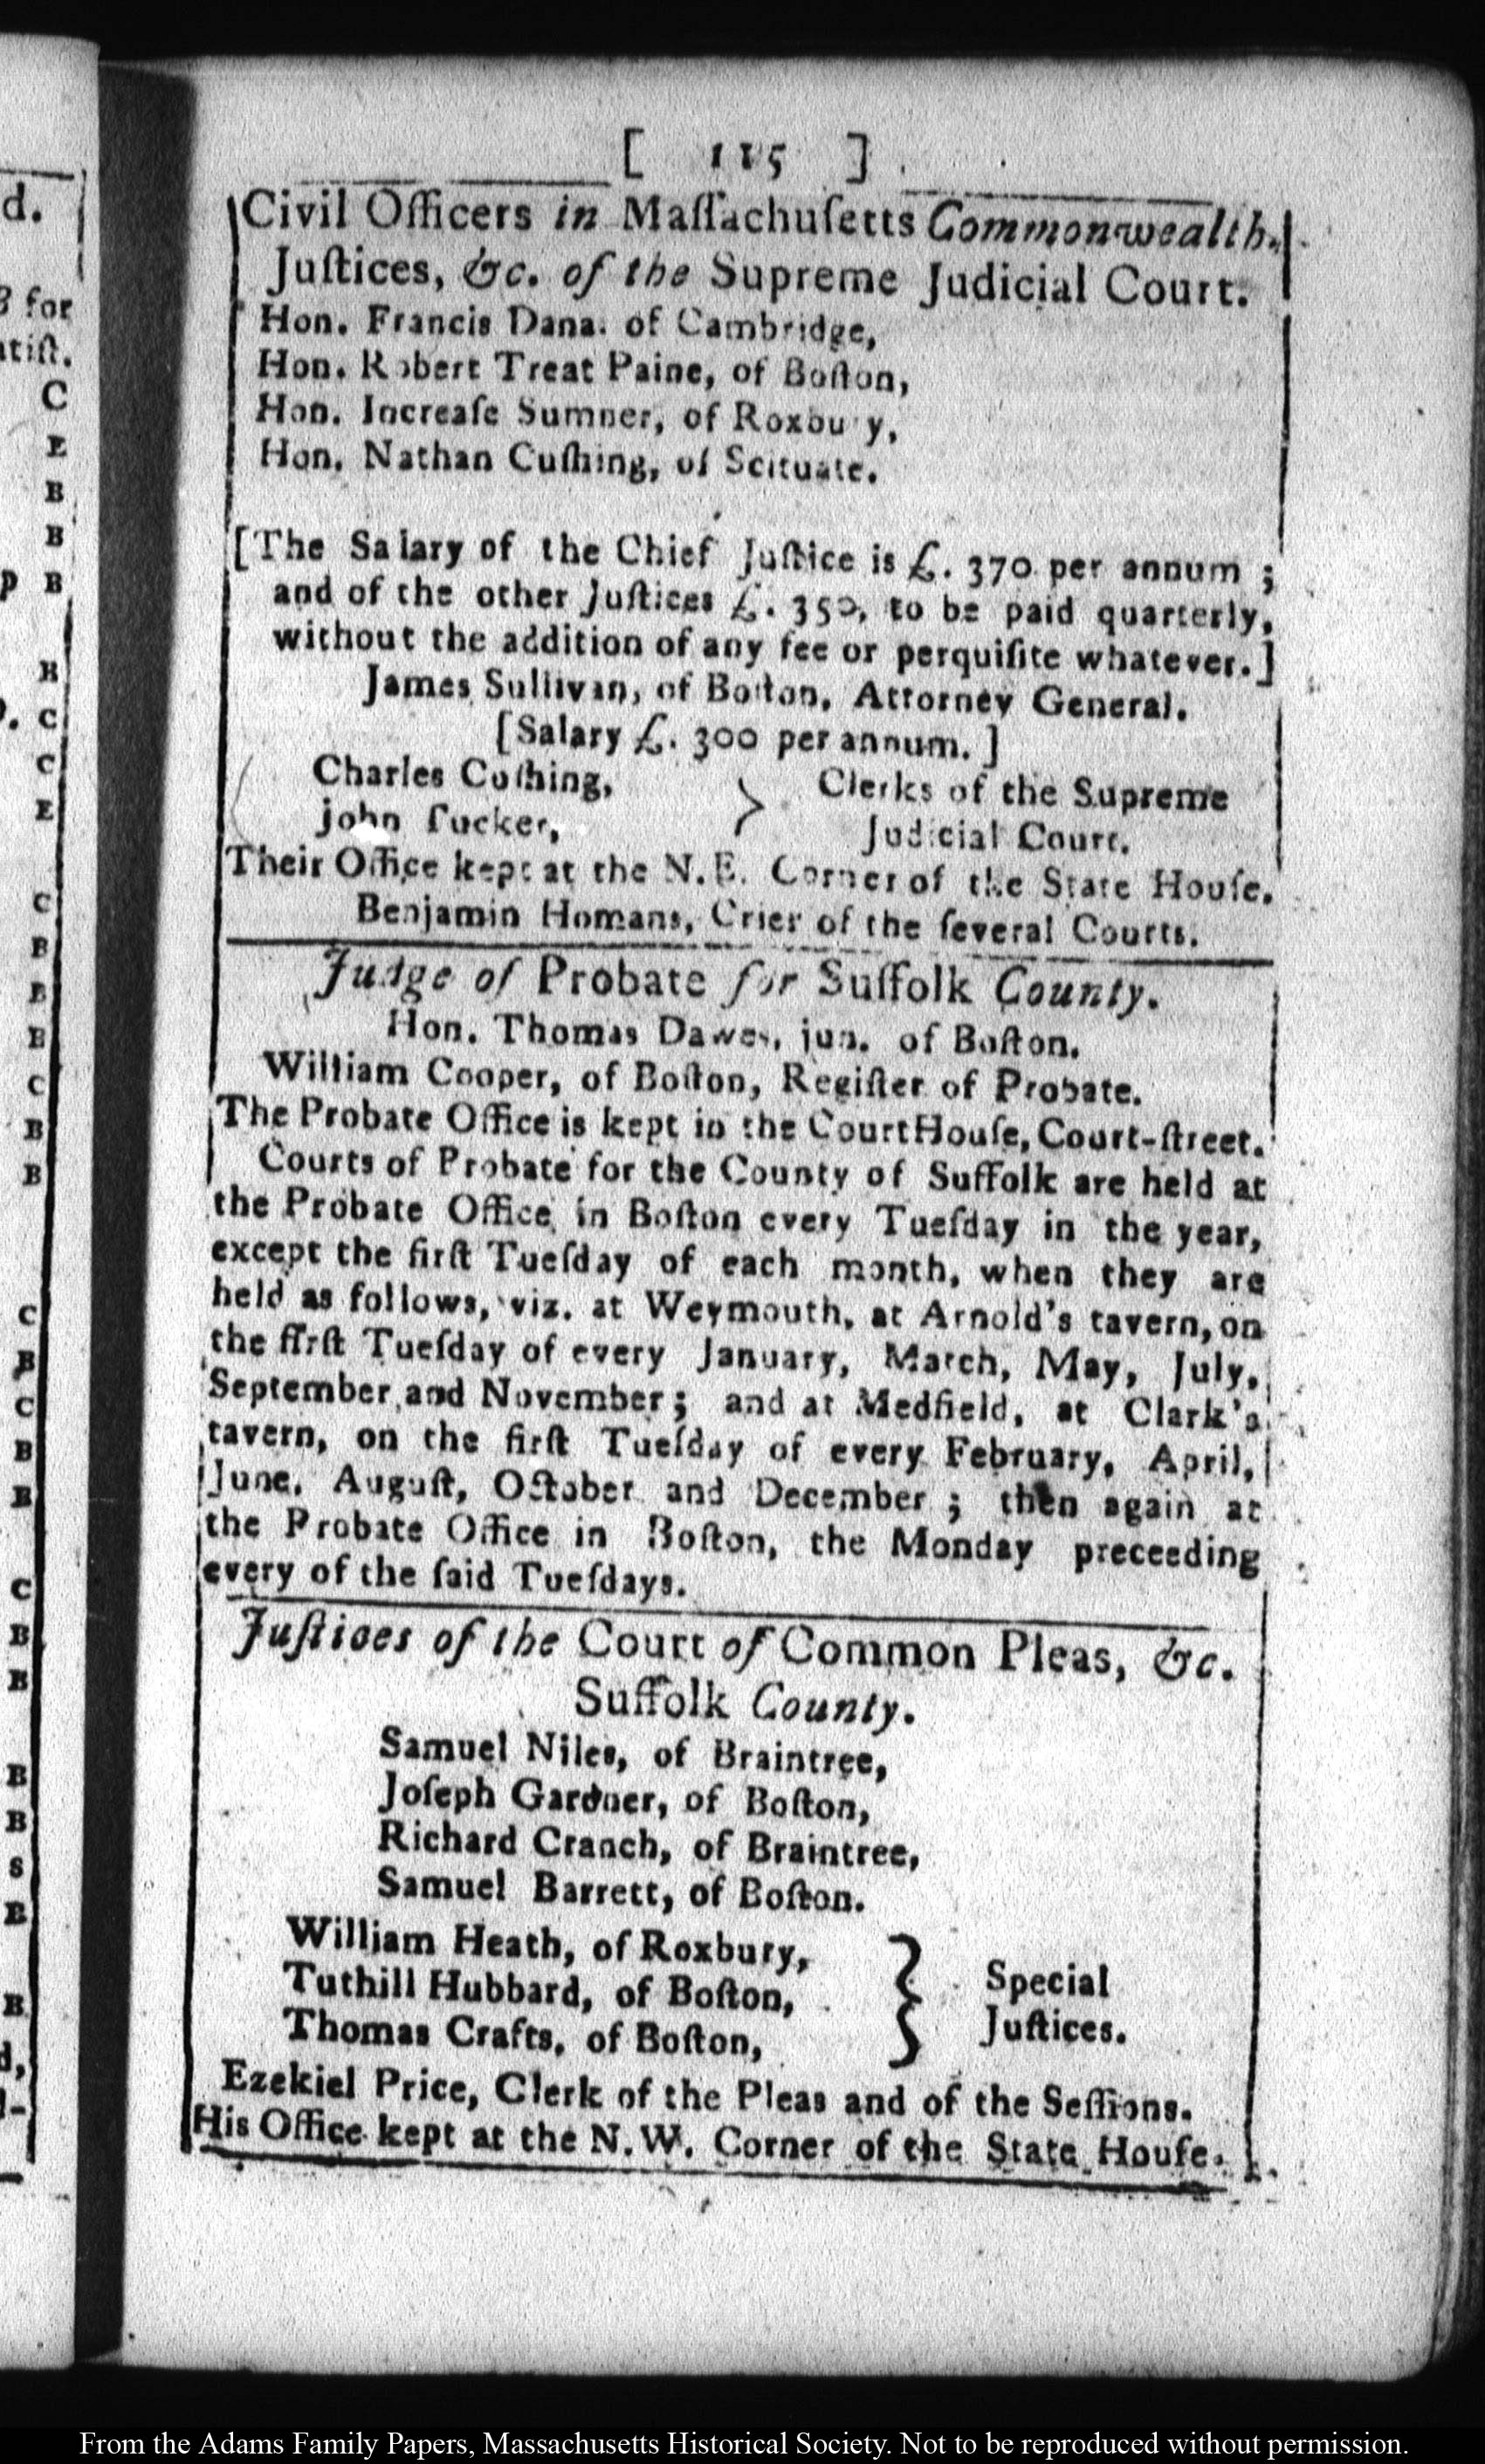 [ 115 ]
Civil Officers in Maſſachuſetts Commonwealth.
Juſtices, &c. of the Supreme Judicial Court.
Hon. Francis Dana. of Cambridge,
Hon. Robert Treat Paine, of Boſton,
Hon. Increaſe Sumner, of Roxbu y,
Hon. Nathan Cuſhing, of Scituate.
[The Salary of the Chief Juſtice is £. 370 per annum ;
and of the other Juſtices £. 350, to be paid quarterly,
without the addition of any fee or perquiſite whatever.]
James Sullivan, of Boſton, Attorney General.
[Salary £. 300 per annum. ]
Charles Cuſhing, } Clerks of the Supreme
john Tucker, Judicial Court.
Their Office kept at the N.E. Corner of the State Houſe.
Benjamin Homans, Crier of the ſeveral Courts.
Judge of Probate for Suffolk County.
Hon. Thomas Dawes, jun. of Boſton.
William Cooper, of Boſton, Regiſter of Probate.
The Probate Office is kept in the CourtHouſe, Court-ſtreet.
Courts of Probate for the County of Suffolk are held at
the Probate Office in Boſton every Tueſday in the year,
except the firſt Tueſday of each month, when they are
held as follows, viz. at Weymouth, at Arnold's tavern, on
the ffrſt Tueſday of every January, March, May, July,
September and November ; and at Medfield, at Clark's
tavern, on the firſt Tueſday of every February, April,
June, Auguſt, October and December ; then again at
the Probate Office in Boſton, the Monday preceeding
every of the ſaid Tueſdays.
Juſtices of the Court of Common Pleas, &c.
Suffolk County.
Samuel Niles, of Braintree,
Joſeph Gardner, of Boſton,
Richard Cranch, of Braintree,
Samuel Barrett, of Boſton.
William Heath, of Roxbury,
Tuthill Hubbard, of Boſton, } Special
Thomas Crafts, of Boſton, Juſtices.
Ezekiel Price, Clerk of the Pleas and of the Seſſions.
His Office kept at the N.W. Corner of the State Houſe.
From the Adams Family Papers, Massachusetts Historical Society. Not to be reproduced without permission.